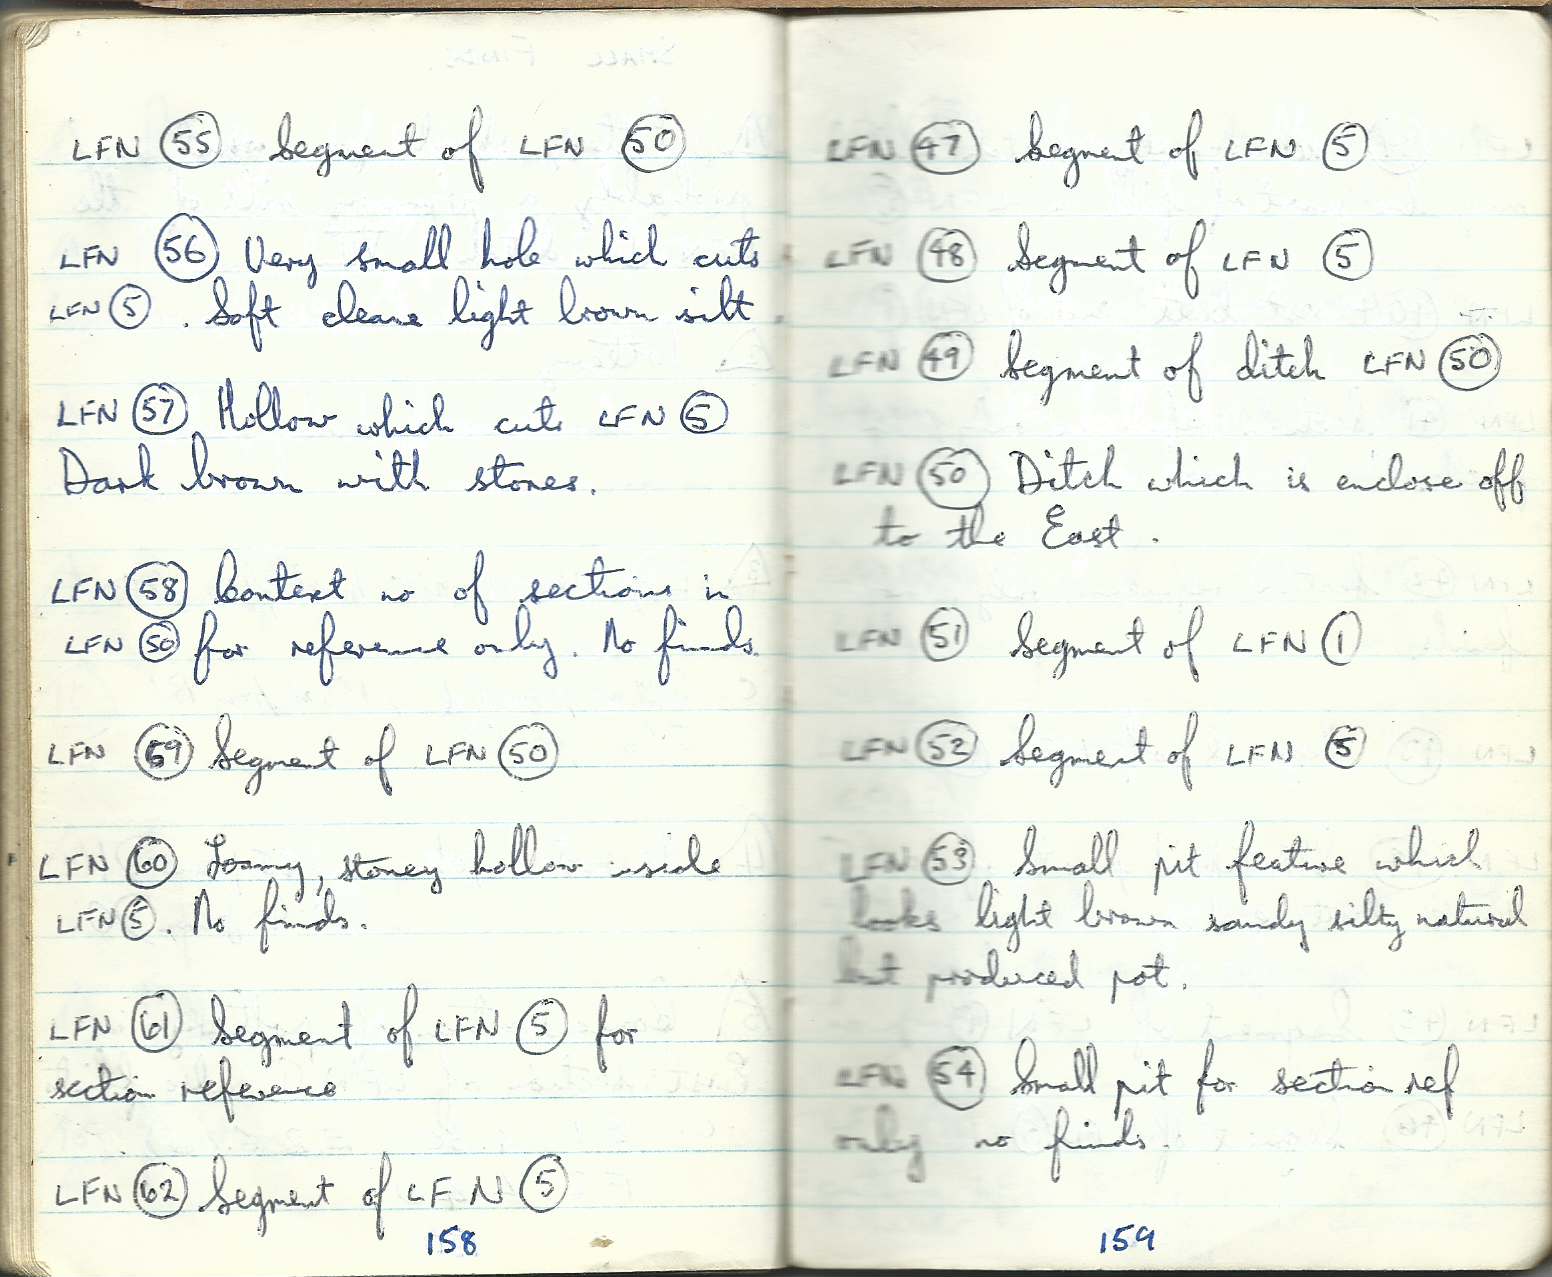 LFN 55 Segment of LFN 50
LFN 56 Very small hole which cuts
LFN 5 . Soft cleane light brown silt.
LFN 57 Hollow which cuts LFN 5
Dark brown with stones.
LFN 58 Context no of sections in
LFN 50 for reference only. No finds.
LFN 59 Segment of LFN 50
LFN 60 Loamy, stoney hollow inside
LFN 5. No finds.
LFN 61 Segment of LFN 5 for
section reference
LFN 62 Segment of LFN 5
158
LFN 47 Segment of LFN 5
LFN 48 Segment of LFN 5
LFN 49 Segment of ditch LFN 50
LFN 50 Ditch which is enclose off
to the East.
LFN 51 Segment of LFN 1
LFN 52 Segment of LFN 5
LFN 53 Small pit feature which
looks light brown sandy silty natural
but produced pot.
LFN 54 Small pit for section ref
only no finds.
159